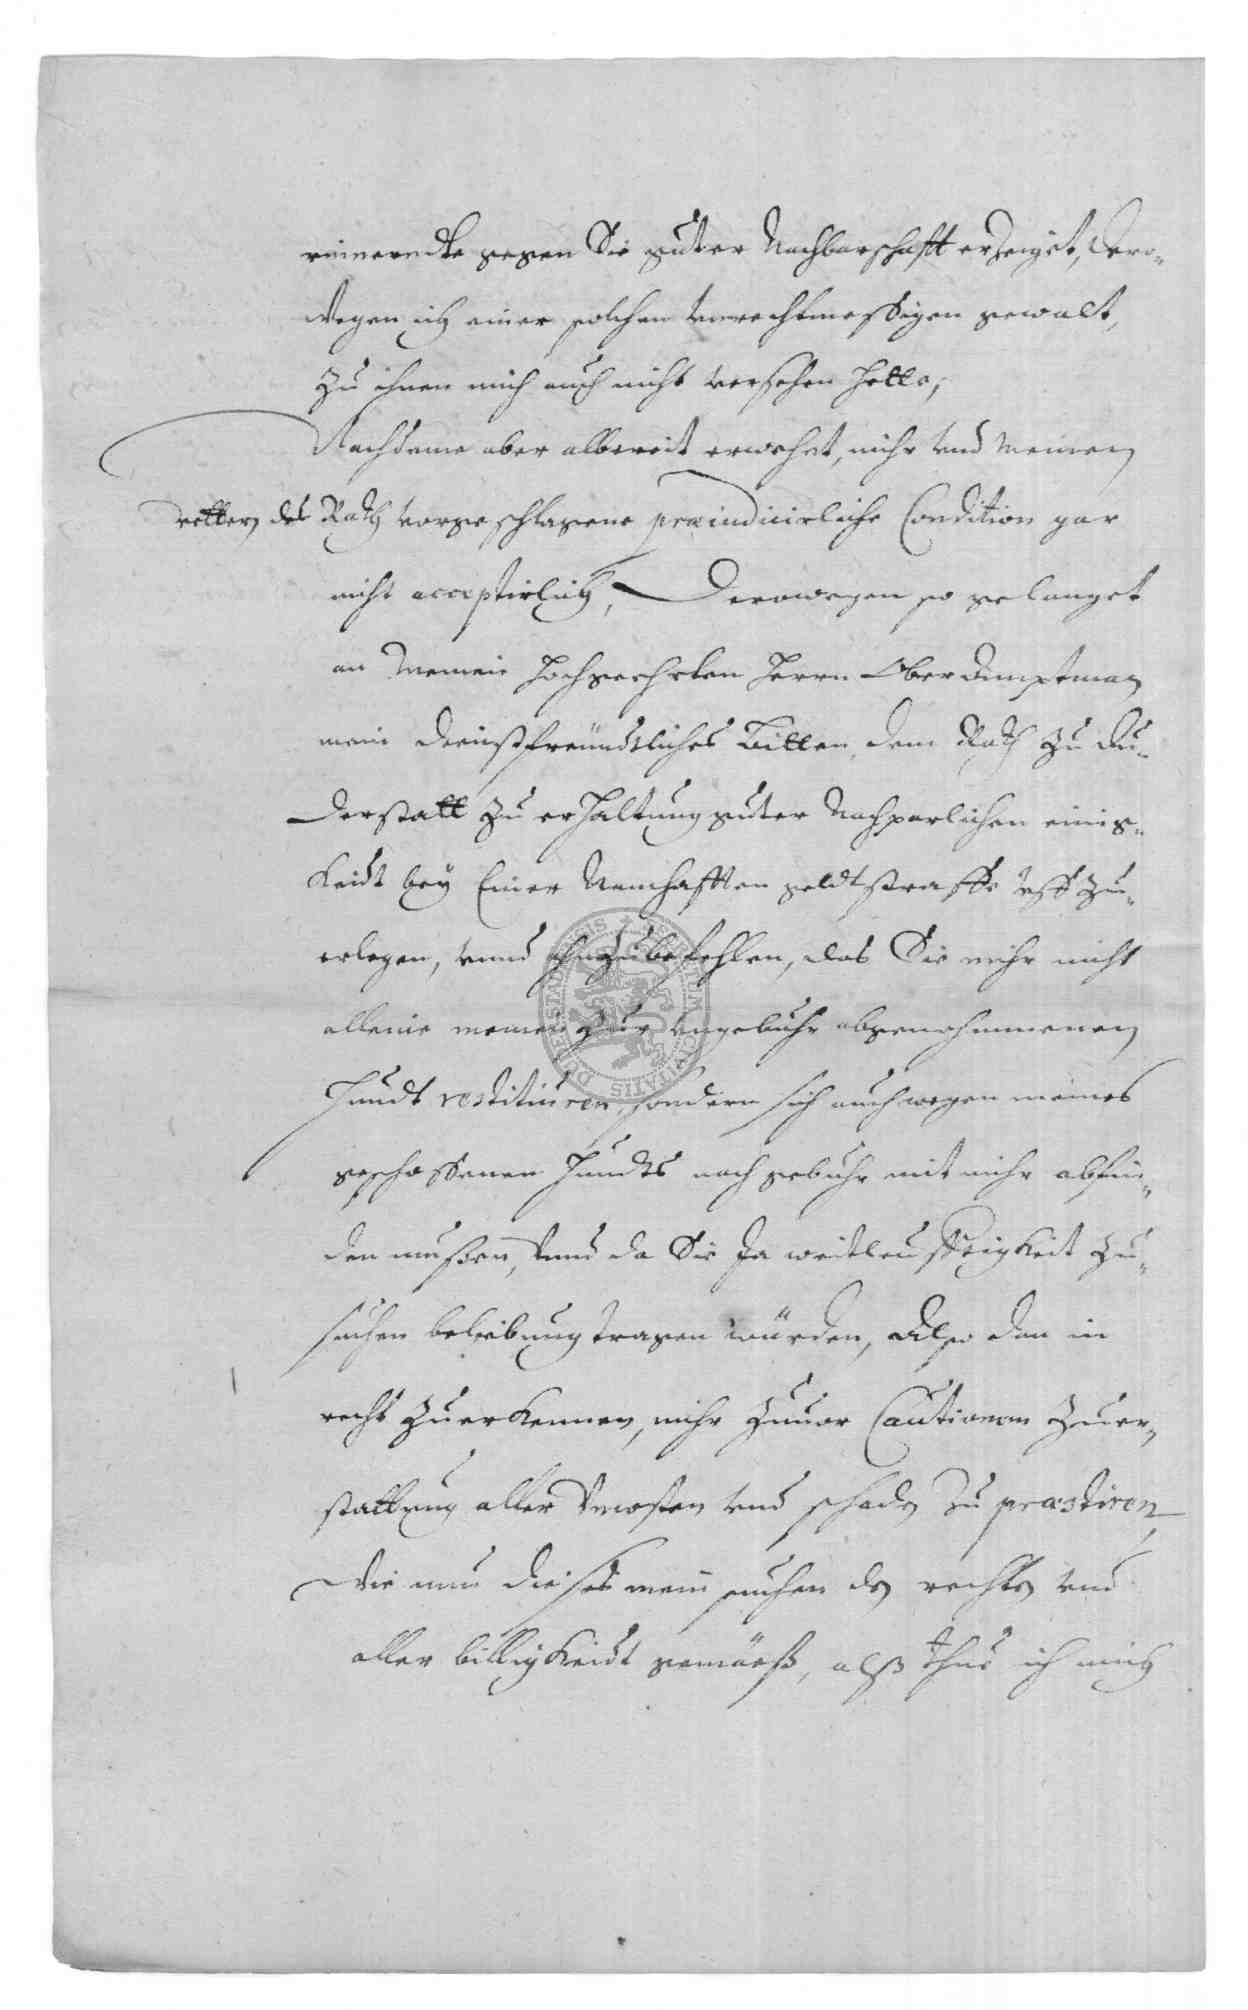 gegen Sie guter Nachbarschafft erzeiget, Dero-
wegen ich einer solchen unrechtmessigen gewalt,
zu ihnen mich auch nicht versehen hette,
Nachdeme aber albereit erwehnt, mihr und meinen
vettern des Rath vorgeschlagene praeiudicirliche Condition gar
nicht acceptirlich, Derowegen so gelanget
an meinen hochgeehrten Herrn Oberamptman
mein dienstfreundtliches bitten, dem Rath zu Du-
derstatt zu erhaltung guter Nachparlichen einig-
keidt bey Einer Namhafften geldtstraffe uff zu-
erlegen, unnd zubefehlen, das Sie mihr nicht
alleine meinen zur ungebuhr abgenohmmenen
Hundt restituiren, sondern sich auch wegen meines
geschossenen Hundts nach gebuhr mit mihr abfin-
den mussen, unnd da Sie Ja weitleufftigkeit zu-
suchen beliebung tragen würden, Also dan in
recht zuerkennen, mihr zuuor Cautionem zuer-
stattung aller Uncosten und schaden zu praestiren
Wie nun dieses mein suchen den rechten und
aller billigkeidt gemäeß, alß thue ich mich
SIGILLUM CIVITATIS DUDERSTADENSIS